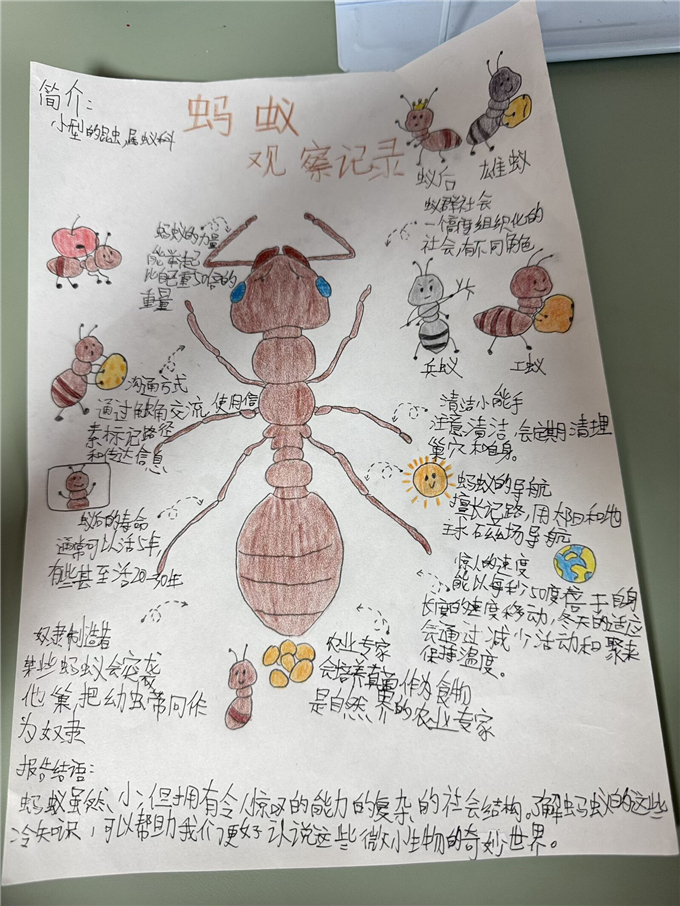 简介:
小型的昆虫,属蚁科
蚂蚁
观察记录
蚁后 雄蚁
蚁群社会
一个高度组织化的
社会,有不同角色
兵蚁 工蚁
蚂蚁的力量
能举起
比自己重50倍的
重量
沟通方式
通过触角交流,使用信
息素标记路径
和传达信息
蚁后的寿命
通常可以活5年,
有些甚至活20-30年
清洁小能手
注意清洁,会定期清理
巢穴和自身。
蚂蚁的导航
擅长记路,用太阳和地
球磁场导航
惊人的速度
能以每秒50度倍于自身
长度的速度移动,冬天的适应
会通过减少活动和聚来
保持温度。
奴隶制造者
某些蚂蚁会突袭
他巢,把幼虫带回作
为奴隶
农业专家
会培养真菌作为食物
是自然界的农业专家
报告结语:
蚂蚁虽然小,但拥有令人惊叹的能力的复杂的社会结构。了解蚂蚁的这些
冷知识,可以帮助我们更好认识这些微小生物的奇妙世界。